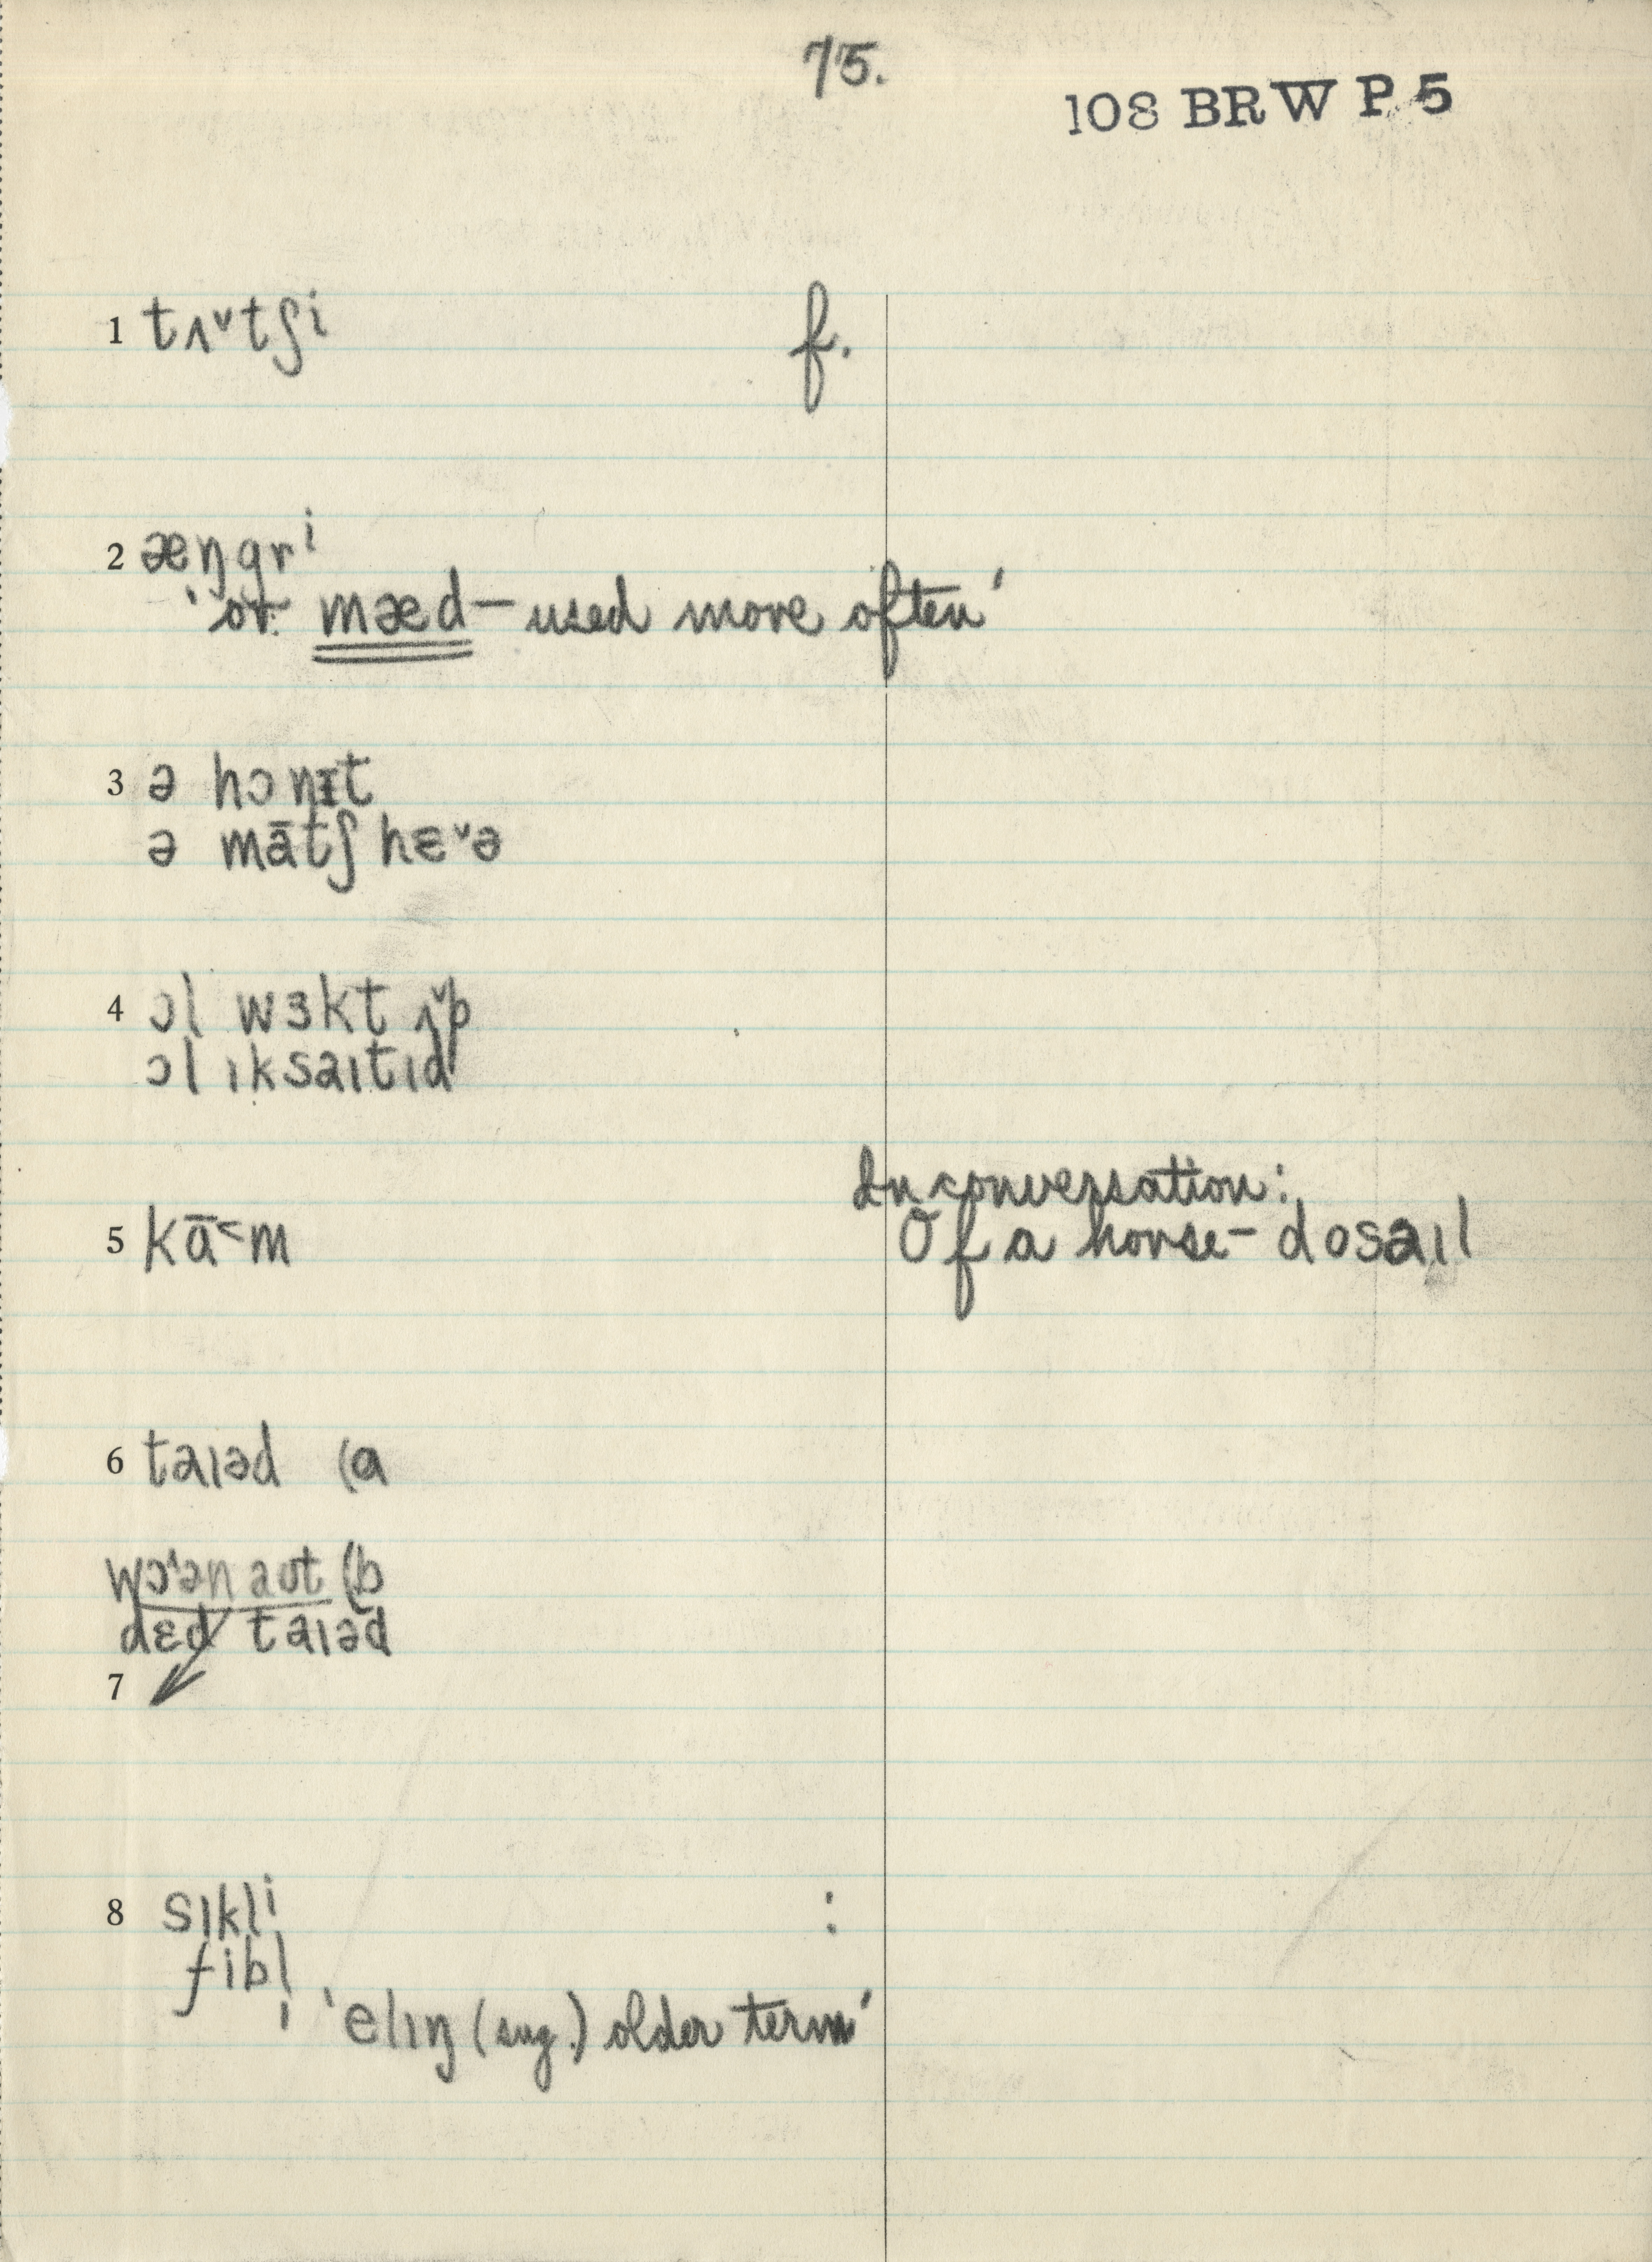 75.
108 BRW P 5
1 tʌ˅tʃi f.
2 æŋgrⁱ
'or mæd – used more often'
3 ə hɔnɪt
ə mātʃ hɛ˅ə
4 ɔl wɜkt ʌ˅p
ɔl ɪksaɪtɪd
In conversation:
5 kā˂m Of a horse – dosaɪl
6 taɪəd (a
wɔ'ən aʊt (b
dɛd taɪəd
7
8 sɪklⁱ :
fibl̩
'elɪŋ (sug.) older term'